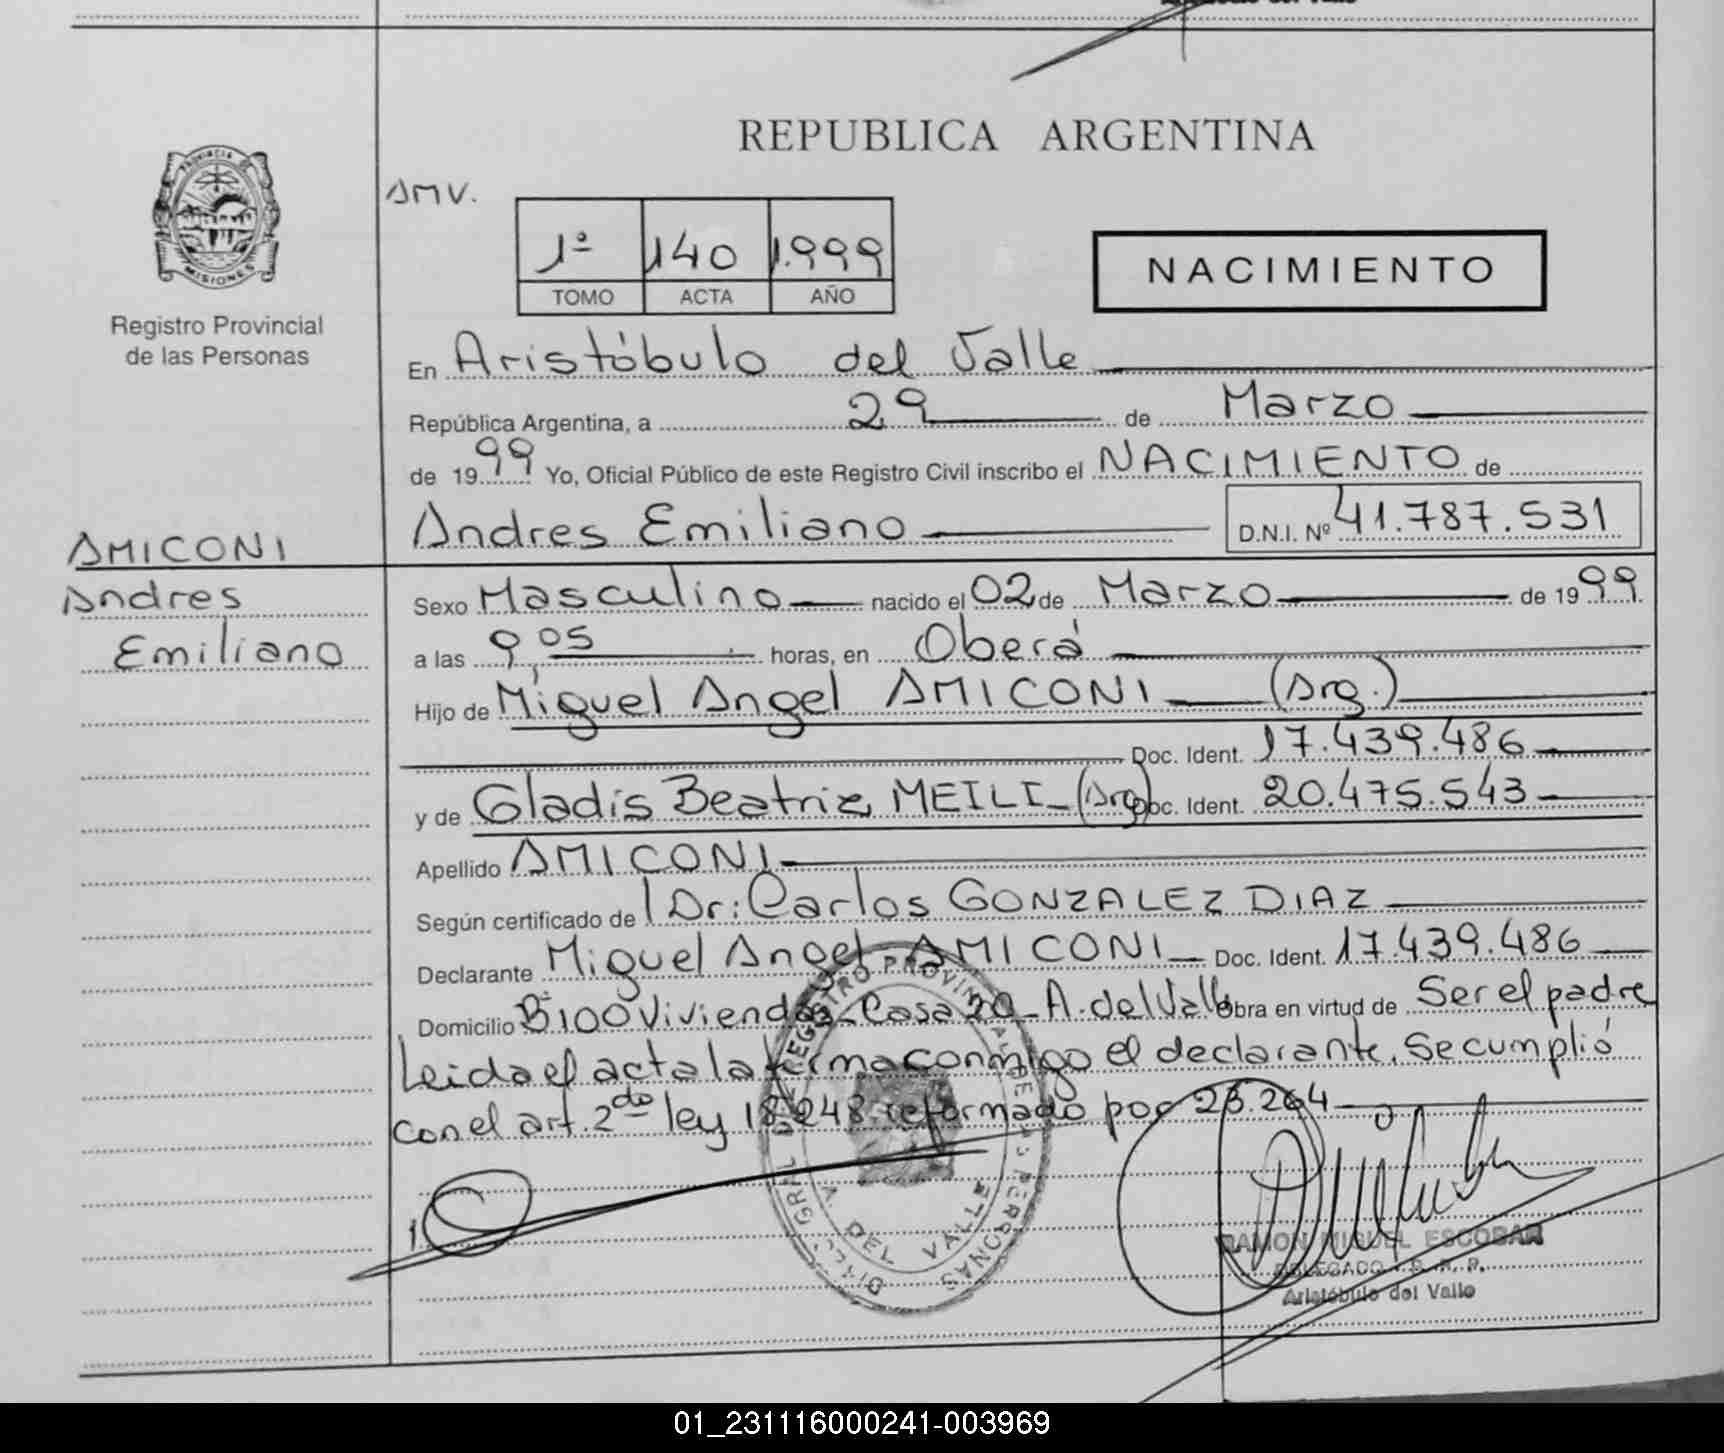 REPUBLICA ARGENTINA
PROVINCIA DE
MISIONES
Registro Provincial
de las Personas
AMV.
1º 140 1.999
TOMO ACTA AÑO
NACIMIENTO
En Aristóbulo del Valle
República Argentina, a 29 de Marzo
de 1999 Yo, Oficial Público de este Registro Civil inscribo el NACIMIENTO de
Andres Emiliano D.N.I. Nº 41.787.531
AMICONI
Andres
Emiliano
Sexo Masculino nacido el 02 de Marzo de 1999
a las 9,05 horas, en Oberá
Hijo de Miguel Angel AMICONI (Arg.)
Doc. Ident. 17.439.486
y de Gladis Beatriz MEILI (Arg) Doc. Ident. 20.475.543
Apellido AMICONI
Según certificado de Dr: Carlos GONZALEZ DIAZ
Declarante Miguel Angel AMICONI Doc. Ident. 17.439.486
Domicilio Bº 100 Viviendas Casa 20 A. del Valle Obra en virtud de Ser el padre
Leida el acta la firma conmigo el declarante. Se cumplió
con el art. 2do ley 18.248 reformado por 23.264
REGISTRO PROVINCIAL DE LAS PERSONAS
A. DEL VALLE
RAMON MIGUEL ESCOBAR
DELEGADO R. P.
Aristóbulo del Valle
01_231116000241-003969